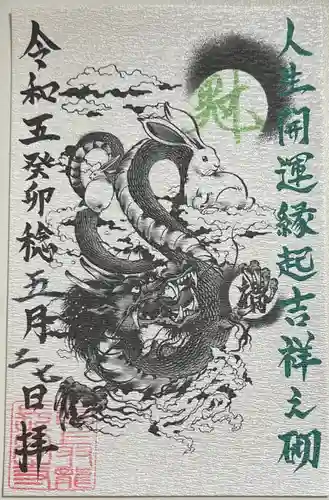 人生開運縁起吉祥之砌
財
令和五癸卯稔五月二七日拝